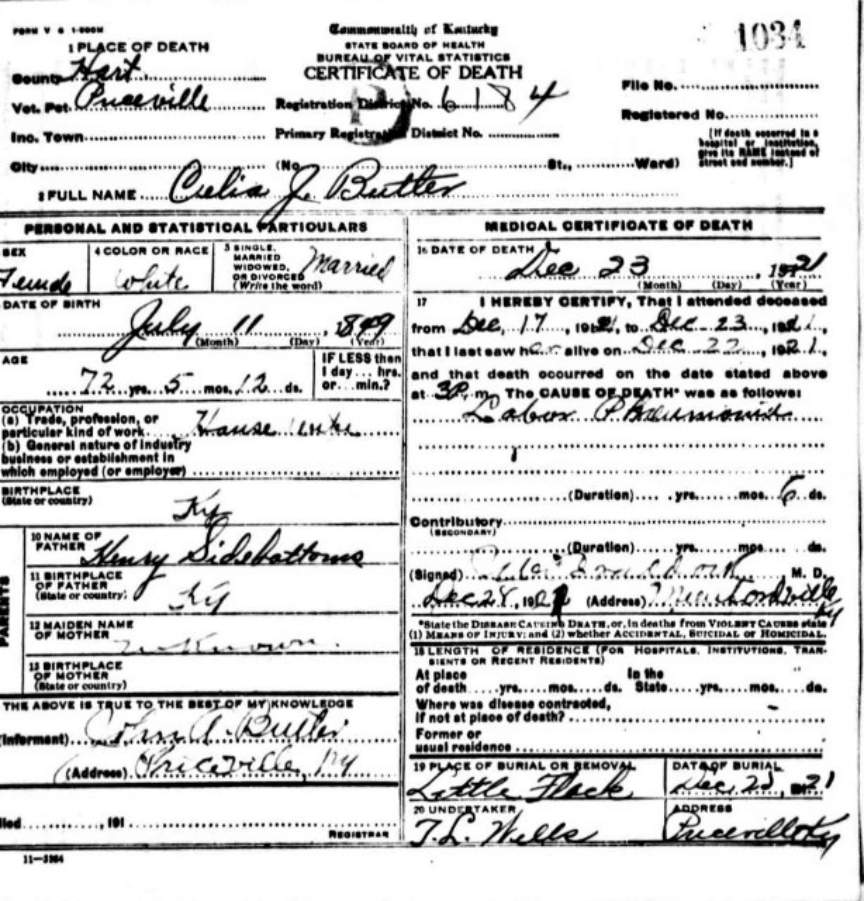 FORM V S 1-500M
Commonwealth of Kentucky
STATE BOARD OF HEALTH
BUREAU OF VITAL STATISTICS
CERTIFICATE OF DEATH
1034
1 PLACE OF DEATH
County Hart
Vot. Pct. Priceville
Inc. Town
City
Registration District No. 6184
Primary Registration District No.
(No. St., Ward)
File No.
Registered No.
[If death occurred in a
hospital or institution,
give its NAME instead of
street and number.]
2 FULL NAME Celia J. Butler
PERSONAL AND STATISTICAL PARTICULARS
SEX
Female
4 COLOR OR RACE
White
5 SINGLE,
MARRIED
WIDOWED,
OR DIVORCED
(Write the word)
Married
DATE OF BIRTH
July 11, 1849
(Month) (Day) (Year)
AGE
72 yrs. 5 mos. 12 ds.
IF LESS then
1 day ... hrs.
or ... min.?
OCCUPATION
(a) Trade, profession, or
particular kind of work House
(b) General nature of industry
business or establishment in
which employed (or employer)
BIRTHPLACE
(State or country)
Ky
PARENTS
10 NAME OF
FATHER Henry Sidebottoms
11 BIRTHPLACE
OF FATHER
(State or country)
Ky
12 MAIDEN NAME
OF MOTHER
unknown.
13 BIRTHPLACE
OF MOTHER
(State or country)
THE ABOVE IS TRUE TO THE BEST OF MY KNOWLEDGE
(Informant) John A. Butler
(Address) Priceville, Ky
iled , 191
REGISTRAR
11-3164
MEDICAL CERTIFICATE OF DEATH
16 DATE OF DEATH
Dec 23, 1921
(Month) (Day) (Year)
17 I HEREBY CERTIFY, That I attended deceased
from Dec, 17, 1921, to Dec 23, 1921,
that I last saw her alive on Dec 22, 1921,
and that death occurred on the date stated above
at 3P.m. The CAUSE OF DEATH* was as follows:
Labor Pneumonia
(Duration) yrs. mos. 6 ds.
Contributory
(SECONDARY)
(Duration) yrs. mos. ds.
(Signed) M. D.
Dec 28, 1921 (Address) Munfordville Ky
*State the DISEASE CAUSING DEATH, or, in deaths from VIOLENT CAUSES state
(1) MEANS OF INJURY; and (2) whether ACCIDENTAL, SUICIDAL or HOMICIDAL.
18 LENGTH OF RESIDENCE (FOR HOSPITALS, INSTITUTIONS, TRANSIENTS OR RECENT RESIDENTS)
At place In the
of death yrs. mos. ds. State yrs. mos. ds.
Where was disease contracted,
if not at place of death?
Former or
usual residence
19 PLACE OF BURIAL OR REMOVAL
Little Flock
DATE OF BURIAL
Dec 25, 1921
20 UNDERTAKER
T. L. Wells
ADDRESS
Priceville Ky